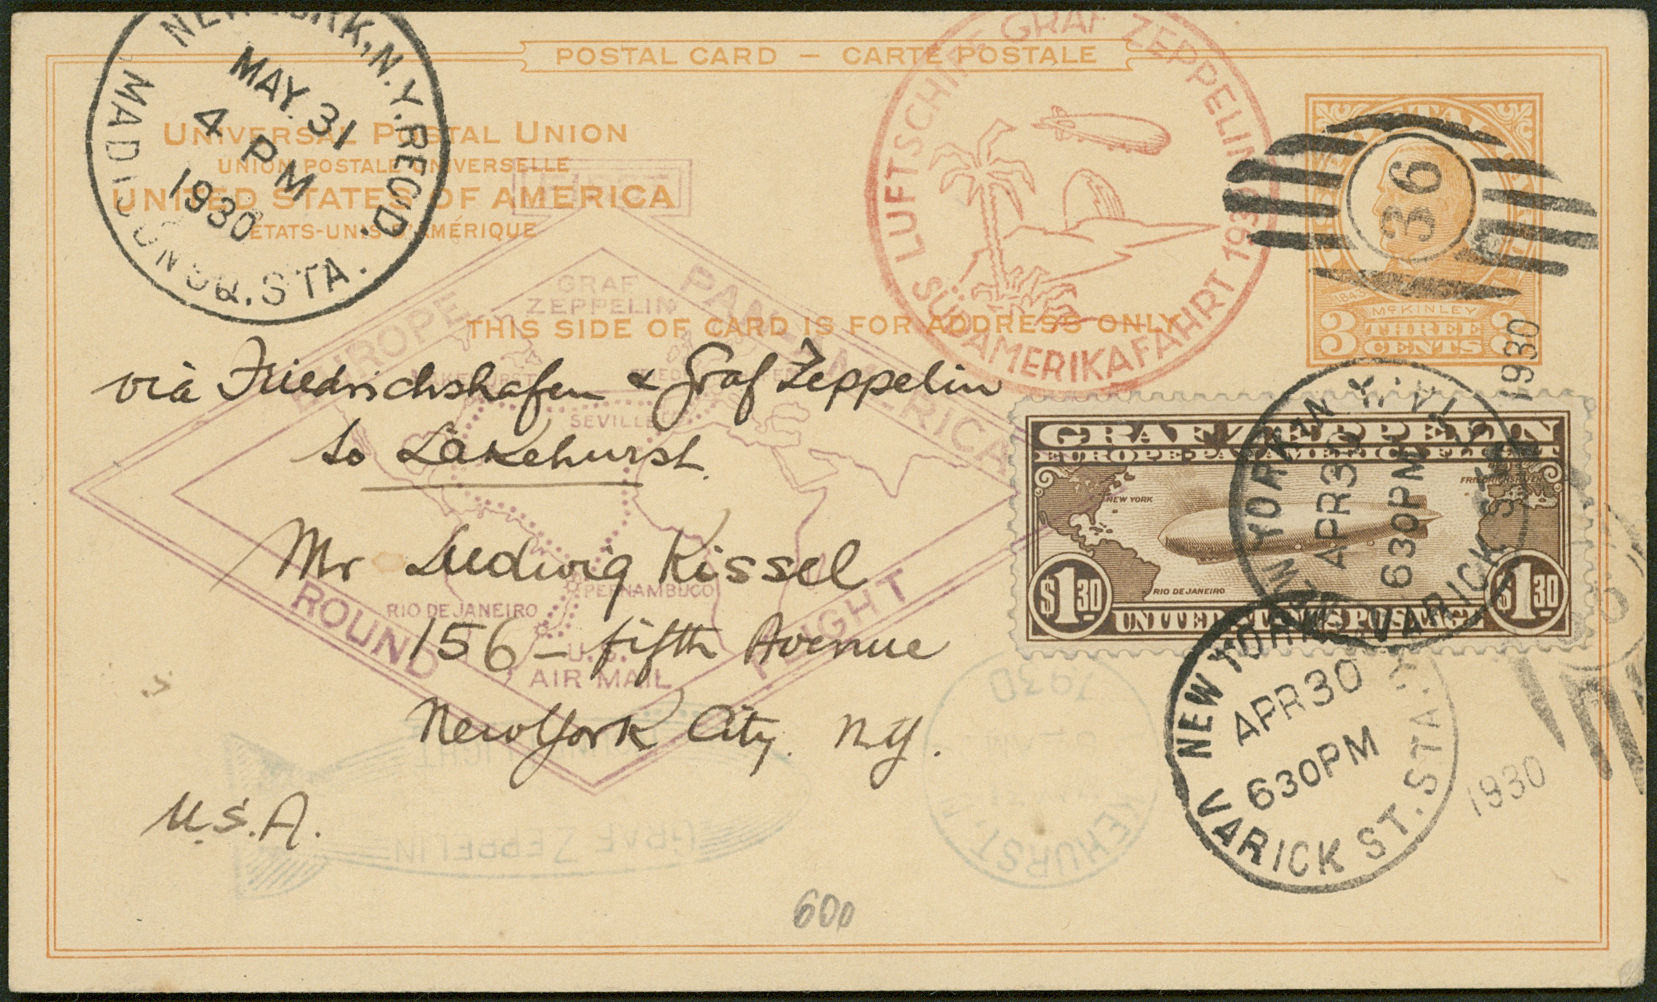 POSTAL CARD — CARTE POSTALE
NEW YORK, N.Y. REC'D.
MADISON SQ. STA.
MAY. 31
4 PM
1930
UNIVERSAL POSTAL UNION
UNION POSTALE UNIVERSELLE
UNITED STATES OF AMERICA
ÉTATS-UNIS D'AMÉRIQUE
THIS SIDE OF CARD IS FOR ADDRESS ONLY
LUFTSCHIFF GRAF ZEPPELIN
SÜDAMERIKAFAHRT 1930
36
McKINLEY
3 THREE 3
CENTS
1930
EUROPE PAN-AMERICA
ROUND FLIGHT
GRAF
ZEPPELIN
LAKEHURST
SEVILLE
PERNAMBUCO
RIO DE JANEIRO
U.S.
AIR MAIL
via Friedrichshafen & Graf Zeppelin
to Lakehurst
Mr Ludwig Kissel
156 – fifth Avenue
New York City. N.Y.
U.S.A.
GRAF ZEPPELIN
EUROPE-PAN AMERICA FLIGHT
NEW YORK
RIO DE JANEIRO
$1.30
$1.30
UNITED STATES POSTAGE
NEW YORK N.Y.
VARICK ST. STA.
APR 30
630PM
NEW YORK, N.Y.
VARICK ST. STA.
APR 30
630PM
1930
1930
LAKEHURST, N.J.
FLIGHT
GRAF ZEPPELIN
600